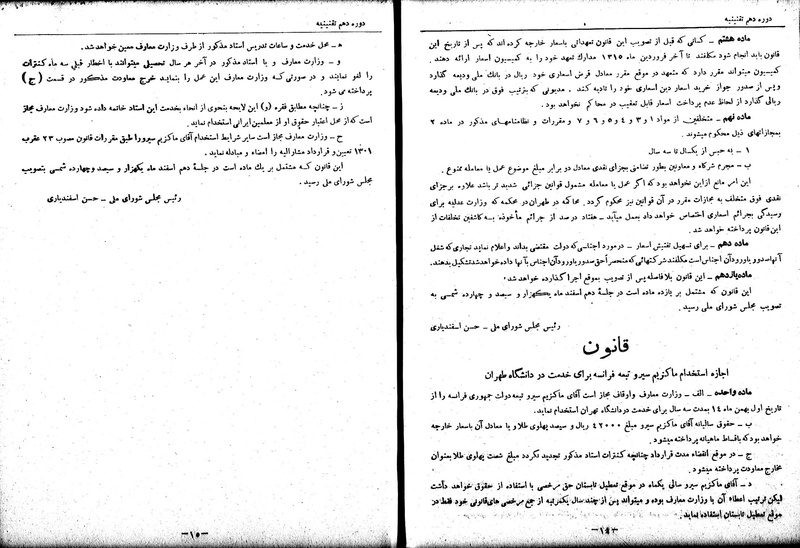 دوره دهم تقنینیه
ماده هشتم – کسانی که قبل از تصویب این قانون تعهداتی باسعار خارجه کرده‌اند که پس از تاریخ این
قانون باید انجام شود مکلفند تا آخر فروردین ماه ۱۳۱۵ مدارك تعهد خود را به کمیسیون اسعار ارائه دهند.
کمیسیون میتواند مقرر دارد که متعهد در موقع مقرر معادل قرض اسعاری خود ریال در بانك ملی ودیعه گذارد
و پس از صدور جواز خرید اسعار دین اسعاری خود را تادیه کند . مدیونی که بترتیب فوق در بانك ملی ودیعه
ریالی گذارد از لحاظ عدم پرداخت اسعار قابل تعقیب در محاکم نخواهد بود.
ماده نهم – متخلفین از مواد ۱ و ۳ و ٤ و ٥ و ٦ و ۷ و مقررات و نظامنامهای مذکور در ماده ۲
بمجازاتهای ذیل محکوم میشوند.
۱ – به حبس از یکسال تا سه سال
ب – مجرم شرکاء و معاونین بطور تضامنی بجزای نقدی معادل دو برابر مبلغ موضوع عمل یا معامله ممنوع .
این امر مانع از این نخواهد بود که اگر عمل یا معامله مشمول قوانین جزائی شدید تر باشد علاوه برجزای
نقدی فوق متخلف به مجازات مقرر در آن قوانین نیز محکوم گردد. محاکمه در طهران در محکمه که وزارت عدلیه برای
رسیدگی بجرائم اسعاری اختصاص خواهد داد بعمل میآید – هفتاد درصد از جرائم مأخوذه بسه کاشفین تخلفات از
این قانون پرداخته خواهد شد .
ماده دهم – برای تسهیل تفتیش اسعار – در مورد اجناسی که دولت مقتضی بداند و اعلام نماید تجاری که شغل
آنها صدور یا ورود آن اجناس است مکلفند شرکتهائی که منحصراً حق صدور یا ورود آن اجناس با آنها داده خواهد شد تشکیل بدهند.
ماده یازدهم – این قانون بلافاصله پس از تصویب بموقع اجرا گذارده خواهد شد
این قانون که مشتمل بر یازده ماده است در جلسهٔ دهم اسفند ماه یکهزار و سیصد و چهارده شمسی به
تصویب مجلس شورای ملی رسید .
رئیس مجلس شورای ملی – حسن اسفندیاری
قانون
اجازه استخدام ماکزیم سیرو تبعه فرانسه برای خدمت در دانشگاه طهران
ماده واحده – الف – وزارت معارف و اوقاف مجاز است آقای ماکزیم سیرو تبعه دولت جمهوری فرانسه را از
تاریخ اول بهمن ماه ١٤ بمدت سه سال برای خدمت در دانشگاه تهران استخدام نماید.
ب – حقوق سالیانه آقای ماکزیم سیرو مبلغ ٤٢٠٠٠ ریال و سیصد پهلوی طلا و یا معادل آن باسعار خارجه
خواهد بود که باقساط ماهیانه پرداخته میشود .
ج – در موقع انقضاء مدت قرارداد چنانچه کنترات استاد مذکور تجدید نگردد مبلغ شصت پهلوی طلا بعنوان
مخارج معاودت پرداخته میشود .
د – آقای ماکزیم سیرو سالی یکماه در موقع تعطیل تابستان حق مرخصی با استفاده از حقوق خواهد داشت
لیکن ترتیب اعطاء آن با وزارت معارف بوده و میتواند پس از چند سال یکمرتبه از جمع مرخصی های قانونی خود فقط در
موقع تعطیل تابستان استفاده نماید .
–١٤–
دوره دهم تقنینیه
ه – محل خدمت و ساعات تدریس استاد مذکور از طرف وزارت معارف معین خواهد شد.
و – وزارت معارف و یا استاد مذکور در آخر هر سال تحصیلی میتوانند با اخطار قبلی سه ماه کنترات
را لغو نمایند و در صورتی که وزارت معارف این عمل را بنماید خرج معاودت مذکور در قسمت (ج)
پرداخته می شود .
ز – چنانچه مطابق فقره (و) این لایحه بنحوی از انحاء بخدمت این استاد خاتمه داده شود وزارت معارف مجاز
است که از محل اعتبار حقوق او از معلمین ایرانی استخدام نماید.
ح – وزارت معارف مجاز است سایر شرایط استخدام آقای ماکزیم سیرو را طبق مقررات قانون مصوب ٢٣ عقرب
١٣٠١ تعیین و قرارداد مشارالیه را امضاء و مبادله نماید.
این قانون که مشتمل بر یك ماده است در جلسهٔ دهم اسفند ماه یکهزار و سیصد و چهارده شمسی بتصویب
مجلس شورای ملی رسید .
رئیس مجلس شورای ملی – حسن اسفندیاری
–١٥–